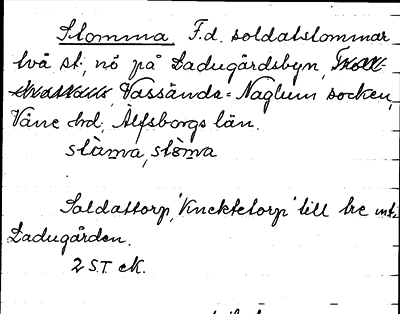 Slomma F.d. soldatslommar
två st, nö på Ladugårdsbyn,
Vassända=Naglum socken,
Väne hd, Älfsborgs län.
slåma, slōma
Soldattorp, 'Knektetorp' till bre
Ladugården.
2 S.T. ek.